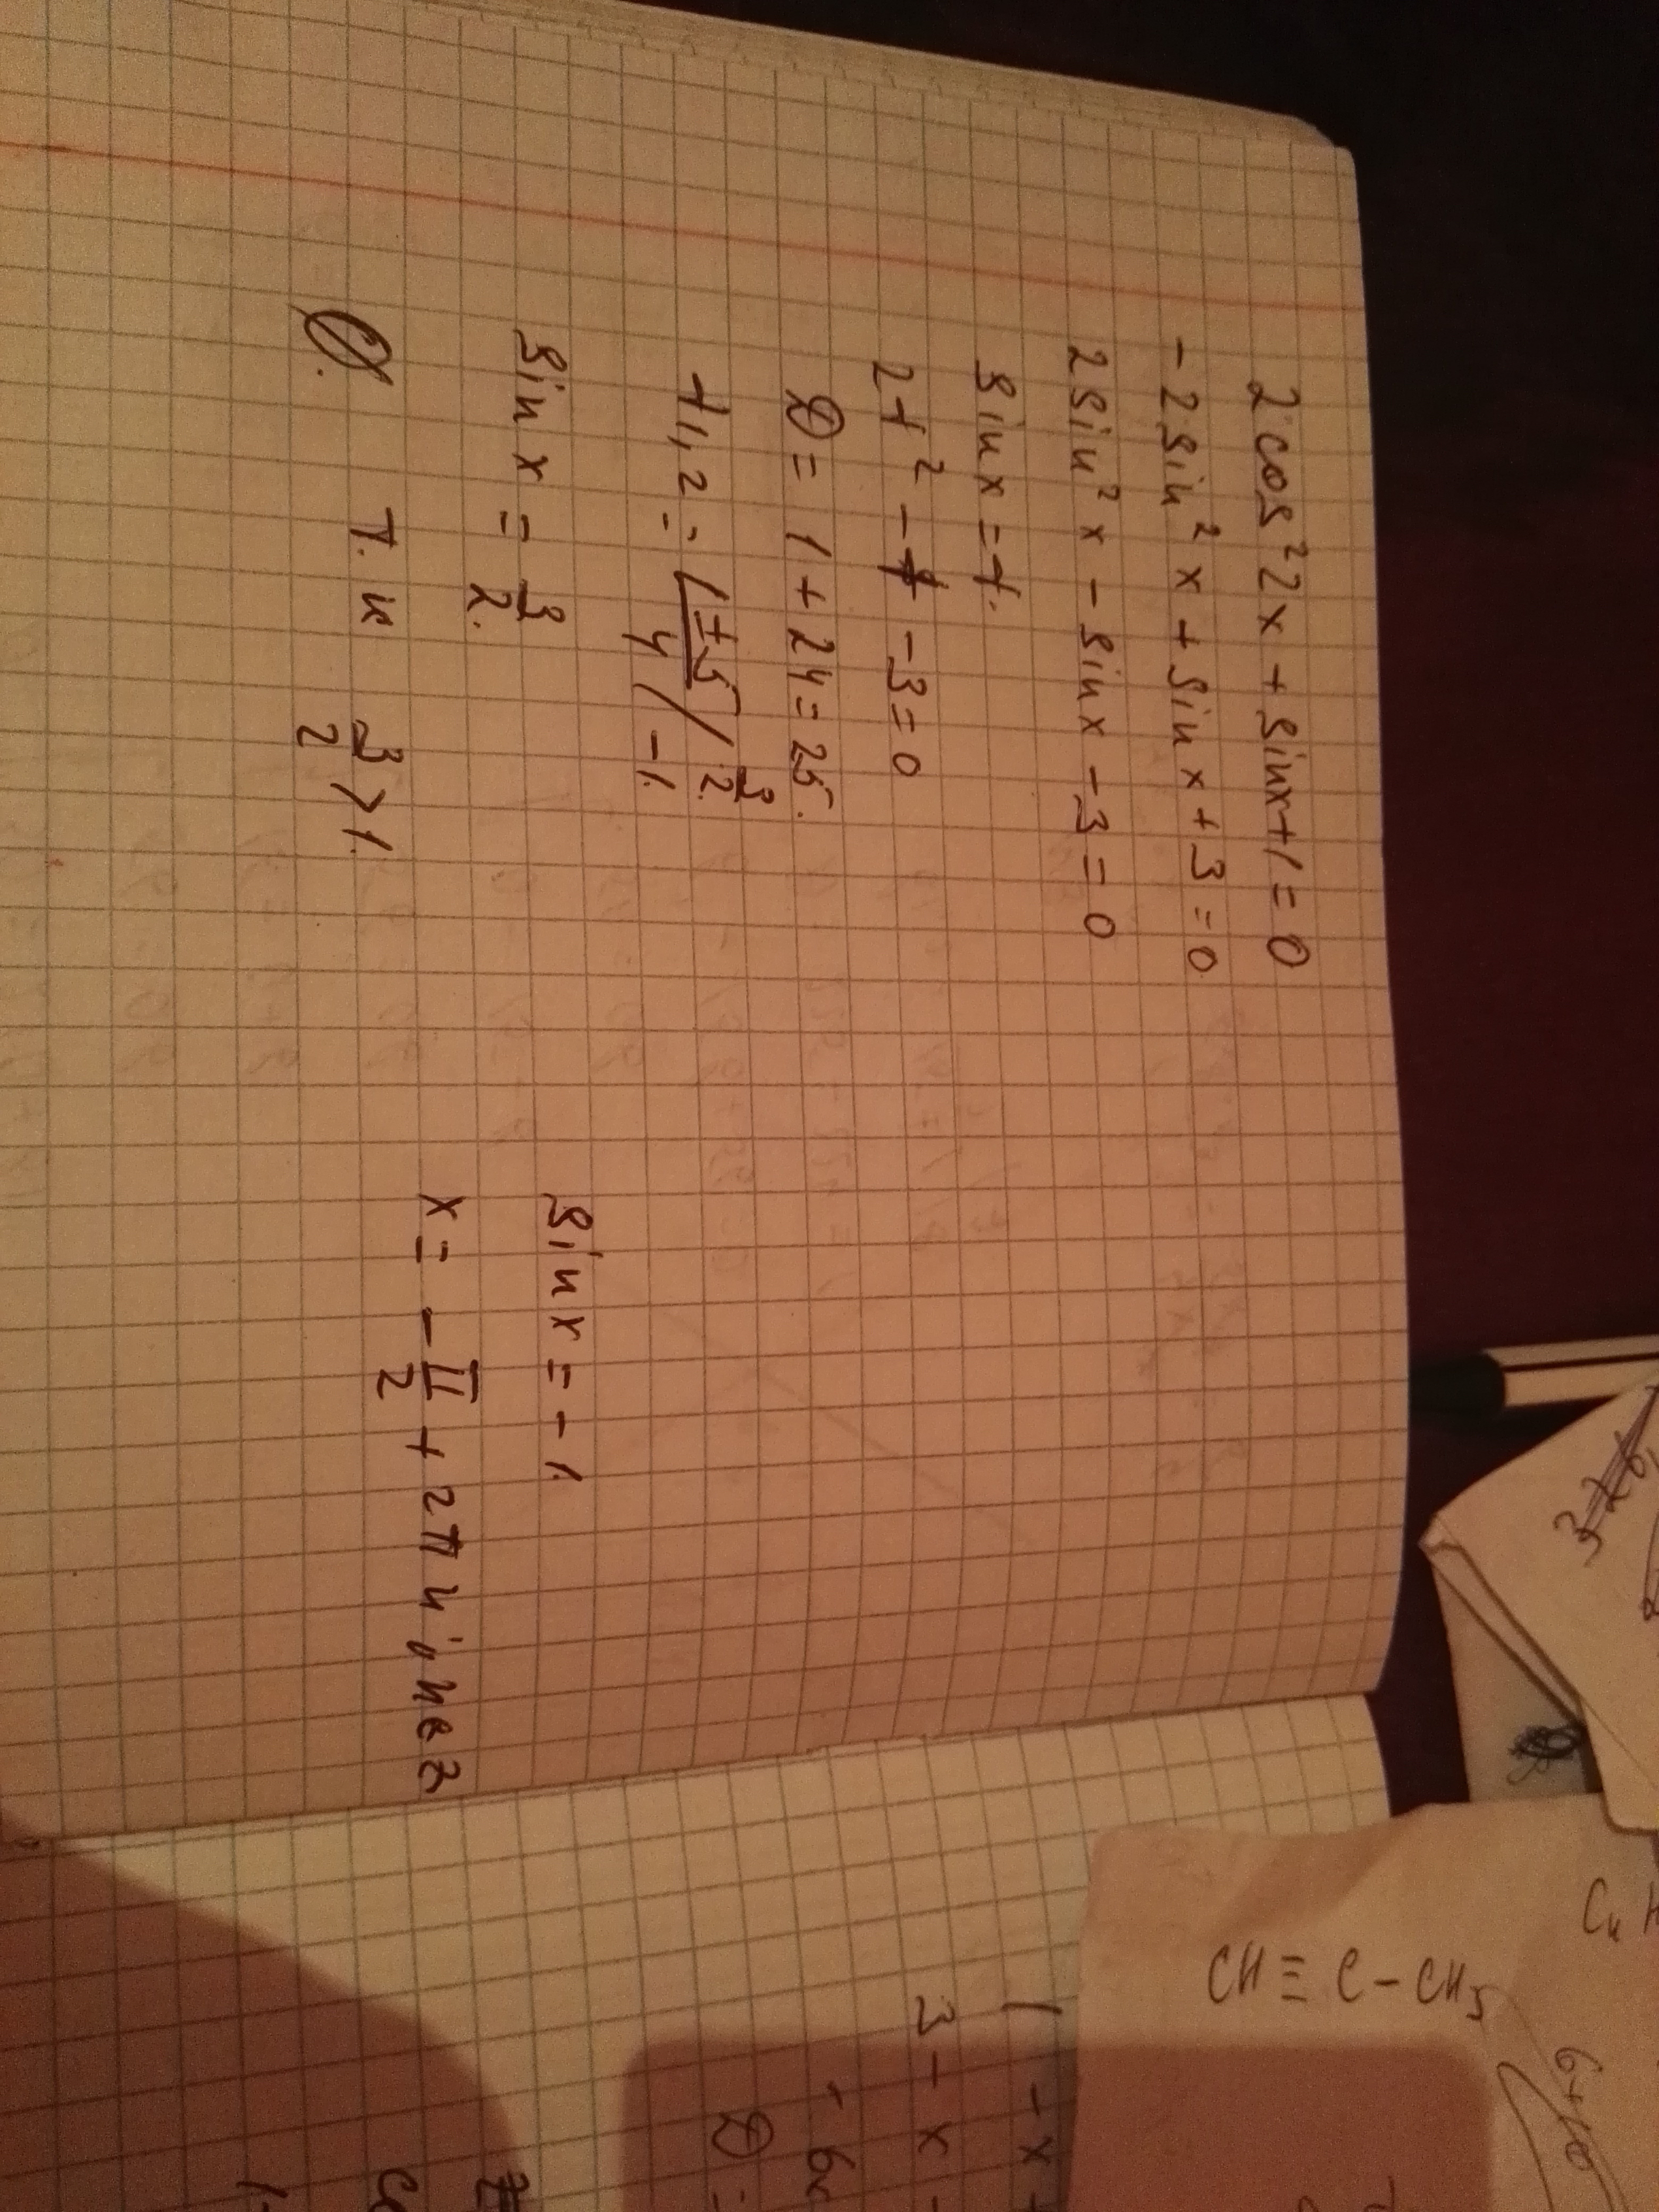 2cos²2x + sinx + 1 = 0
-2sin²x + sinx + 3 = 0
2sin²x - sinx - 3 = 0
sinx = t.
2t² - t - 3 = 0
D = 1 + 24 = 25.
t1,2 = (1 ± 5)/4 / 3/2. / -1.
sinx = 3/2.
Ø. т.к 3/2 > 1.
sinx = -1.
x = -π/2 + 2πn; n∈Z
CH ≡ C - CH3
1 - x +
3 - x -
D =